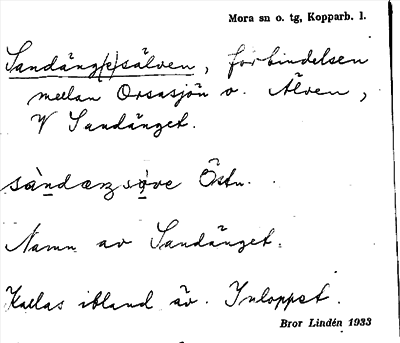 Mora sn o. tg, Kopparb. l.
Sandäng(e)sälven, förbindelsen
mellan Orsasjön o. Älven,
V Sandänget.
Östn.
Namn av Sandänget.
Kallas ibland äv. Inloppet.
Bror Lindén 1933